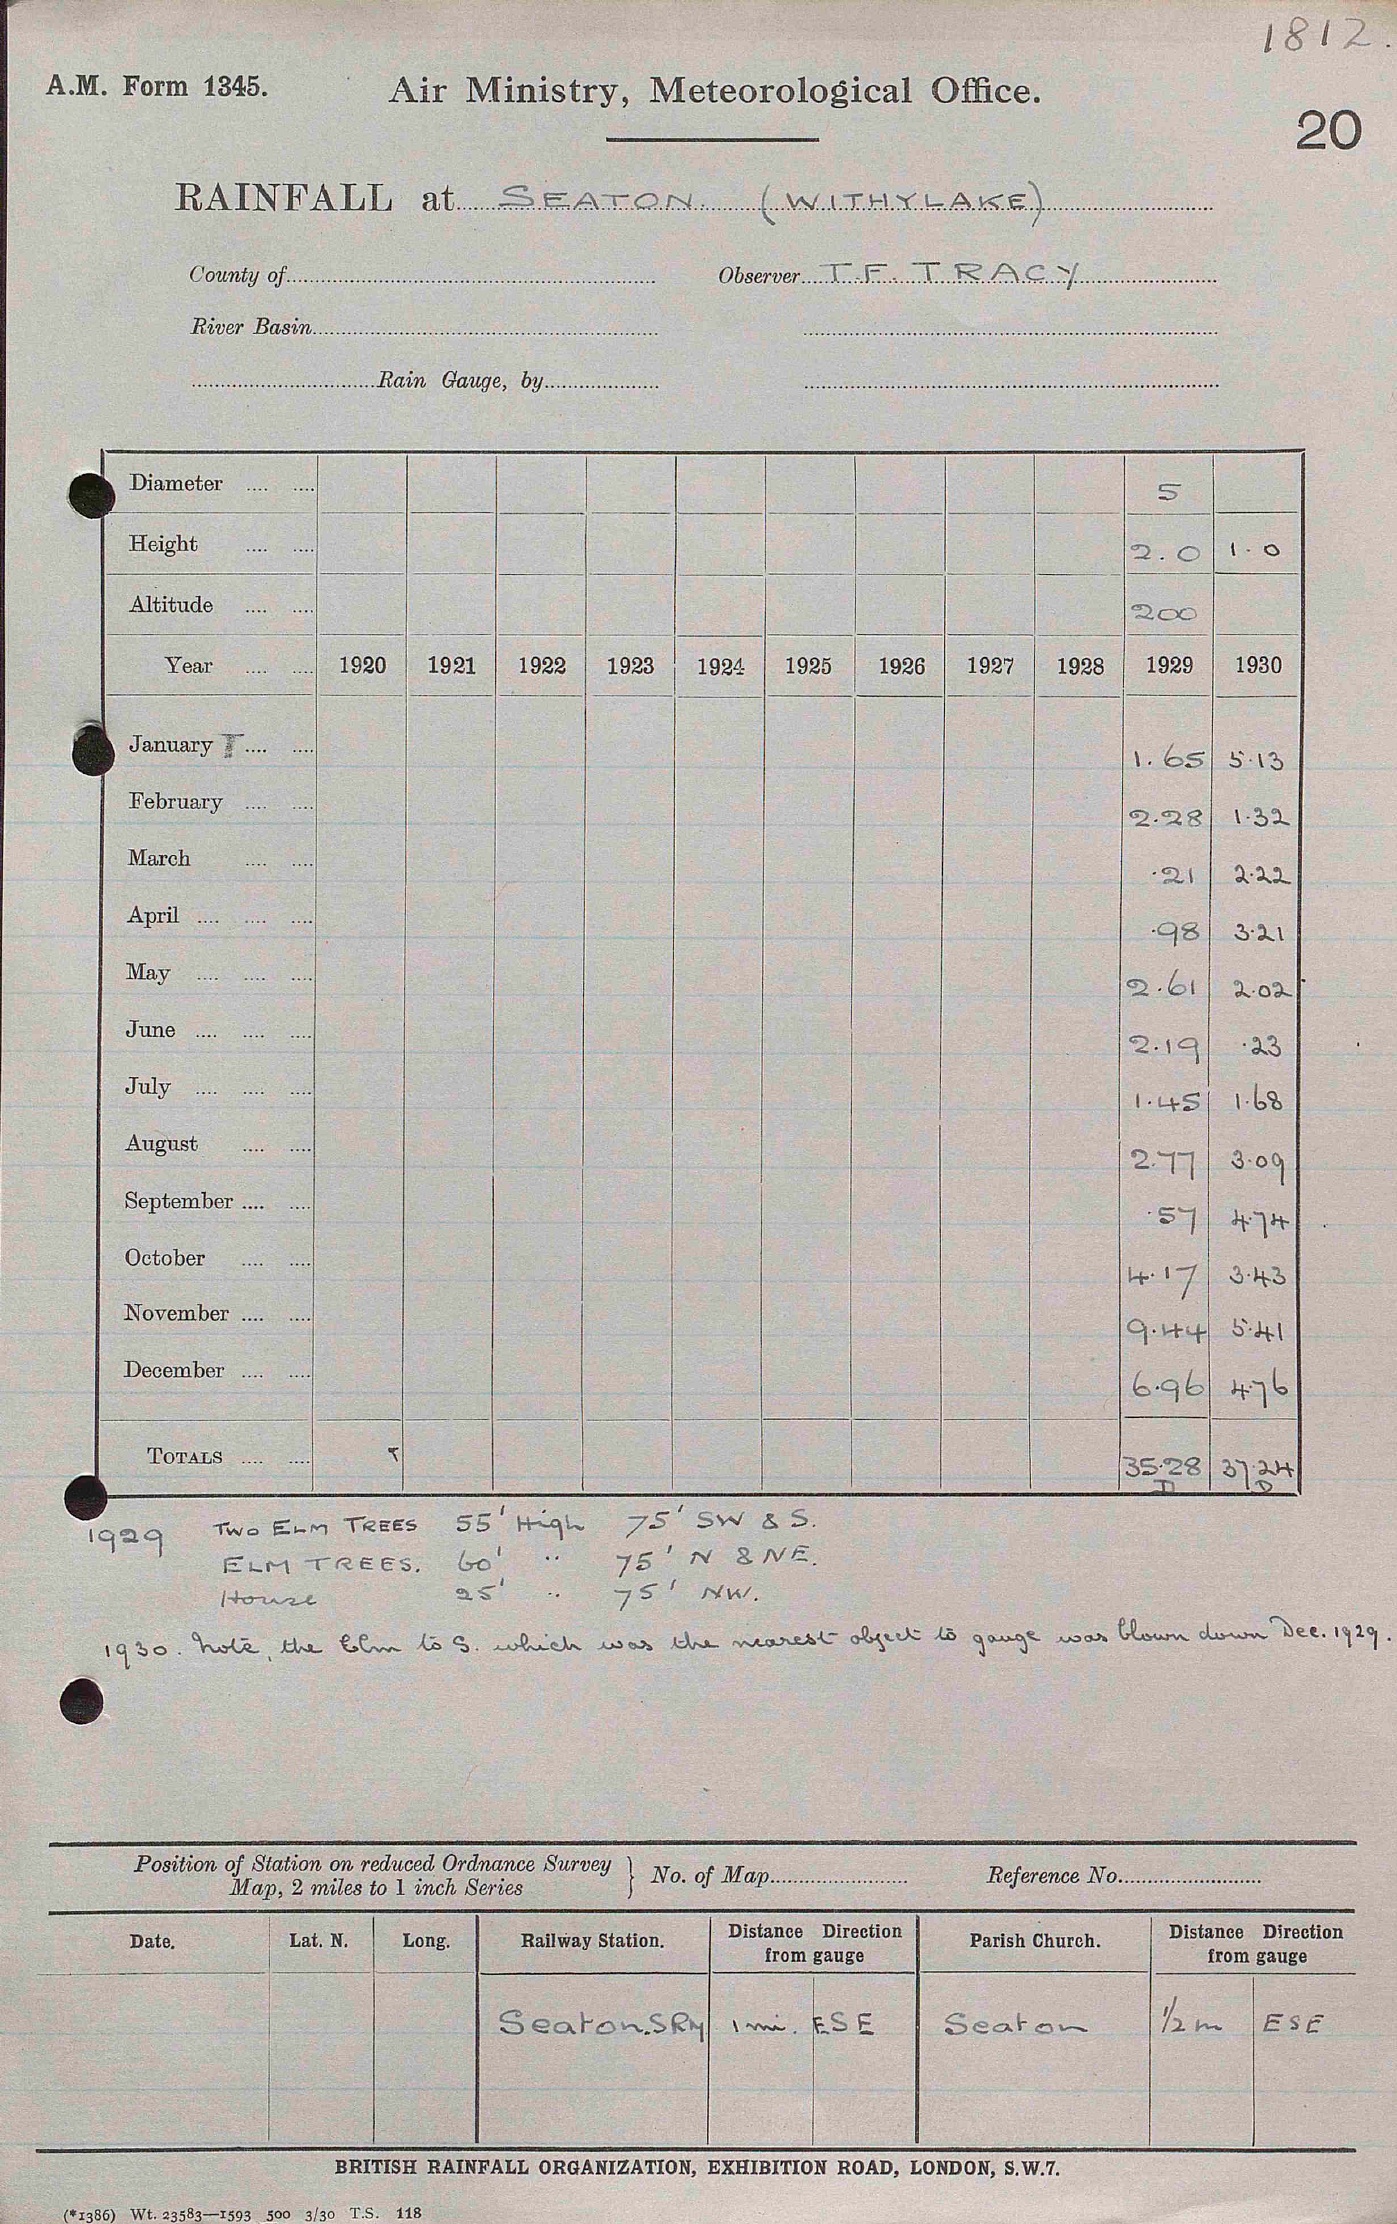 1812.
A.M. Form 1345. Air Ministry, Meteorological Office.
20
RAINFALL at SEATON. (WITHYLAKE)
County of Observer T.F. TRACY
River Basin
Rain Gauge, by
Diameter .... .... 5
Height .... .... 2.0 1.0
Altitude .... .... 200
Year .... .... 1920 1921 1922 1923 1924 1925 1926 1927 1928 1929 1930
January T .... .... 1.65 5.13
February .... .... 2.28 1.32
March .... .... .21 2.22
April .... .... .... .98 3.21
May .... .... .... 2.61 2.02
June .... .... .... 2.19 .23
July .... .... .... 1.45 1.68
August .... .... 2.77 3.09
September .... .... .57 4.74
October .... .... 4.17 3.43
November .... .... 9.44 5.41
December .... .... 6.96 4.76
TOTALS .... .... 35.28 37.24
D D
1929 TWO ELM TREES 55' High 75' SW & S.
ELM TREES. 60' " 75' N & NE.
House 25' " 75' NW.
1930. Note, the Elm to S. which was the nearest object to gauge was blown down Dec. 1929.
Position of Station on reduced Ordnance Survey
Map, 2 miles to 1 inch Series } No. of Map Reference No.
Date. Lat. N. Long. Railway Station. Distance Direction from gauge Parish Church. Distance Direction from gauge
Seaton. SRly 1 mi. ESE Seaton 1/2 m ESE
BRITISH RAINFALL ORGANIZATION, EXHIBITION ROAD, LONDON, S.W.7.
(*1386) Wt. 23583—1593 500 3/30 T.S. 118